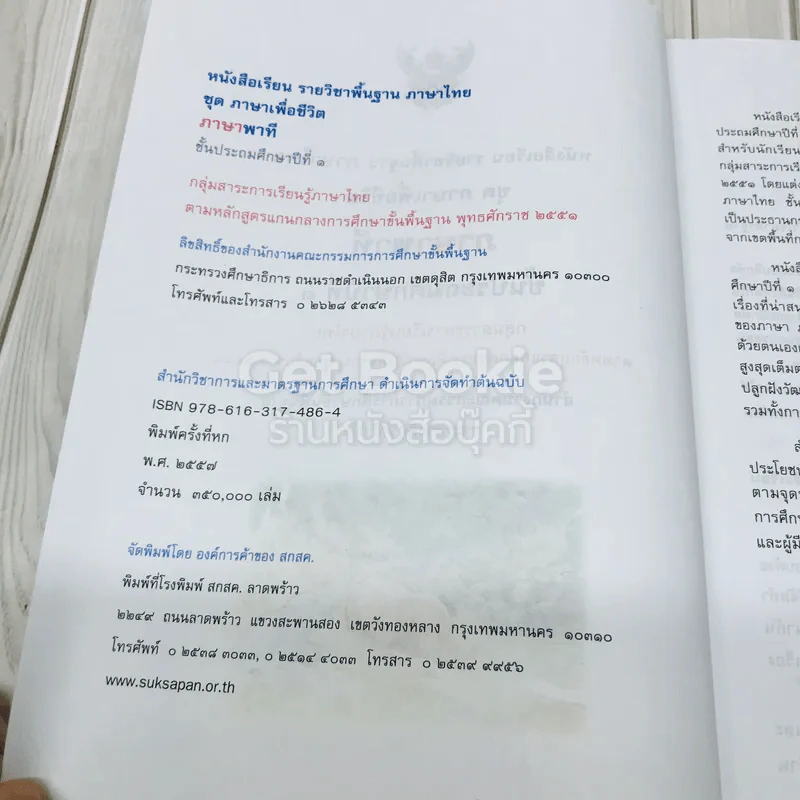 หนังสือเรียน รายวิชาพื้นฐาน ภาษาไทย
ชุด ภาษาเพื่อชีวิต
ภาษาพาที
ชั้นประถมศึกษาปีที่ ๑
กลุ่มสาระการเรียนรู้ภาษาไทย
ตามหลักสูตรแกนกลางการศึกษาขั้นพื้นฐาน พุทธศักราช ๒๕๕๑
ลิขสิทธิ์ของสำนักงานคณะกรรมการการศึกษาขั้นพื้นฐาน
กระทรวงศึกษาธิการ ถนนราชดำเนินนอก เขตดุสิต กรุงเทพมหานคร ๑๐๓๐๐
โทรศัพท์และโทรสาร ๐ ๒๖๒๘ ๕๓๔๓
Get Bookie
สำนักวิชาการและมาตรฐานการศึกษา ดำเนินการจัดทำต้นฉบับ
ISBN 978-616-317-486-4
ร้านหนังสือบุ๊คกี้
พิมพ์ครั้งที่หก
พ.ศ. ๒๕๕๗
จำนวน ๓๕๐,๐๐๐ เล่ม
จัดพิมพ์โดย องค์การค้าของ สกสค.
พิมพ์ที่โรงพิมพ์ สกสค. ลาดพร้าว
๒๒๔๙ ถนนลาดพร้าว แขวงสะพานสอง เขตวังทองหลาง กรุงเทพมหานคร ๑๐๓๑๐
โทรศัพท์ ๐ ๒๕๓๘ ๓๐๓๓, ๐ ๒๕๑๔ ๔๐๓๓ โทรสาร ๐ ๒๕๓๙ ๙๙๕๖
www.suksapan.or.th
หนังสือเรี
ประถมศึกษาปีที่
สำหรับนักเรียน
กลุ่มสาระการเรี
๒๕๕๑ โดยแต่ง
ภาษาไทย ชั้
เป็นประธานก
จากเขตพื้นที่ก
หนังสื
ศึกษาปีที่ ๑
เรื่องที่น่าส
ของภาษา
ด้วยตนเอง
สูงสุดเต็มต
ปลูกฝังวัฒ
รวมทั้งกา
ประโยชน
ตามจุด
การศึก
และผู้มี